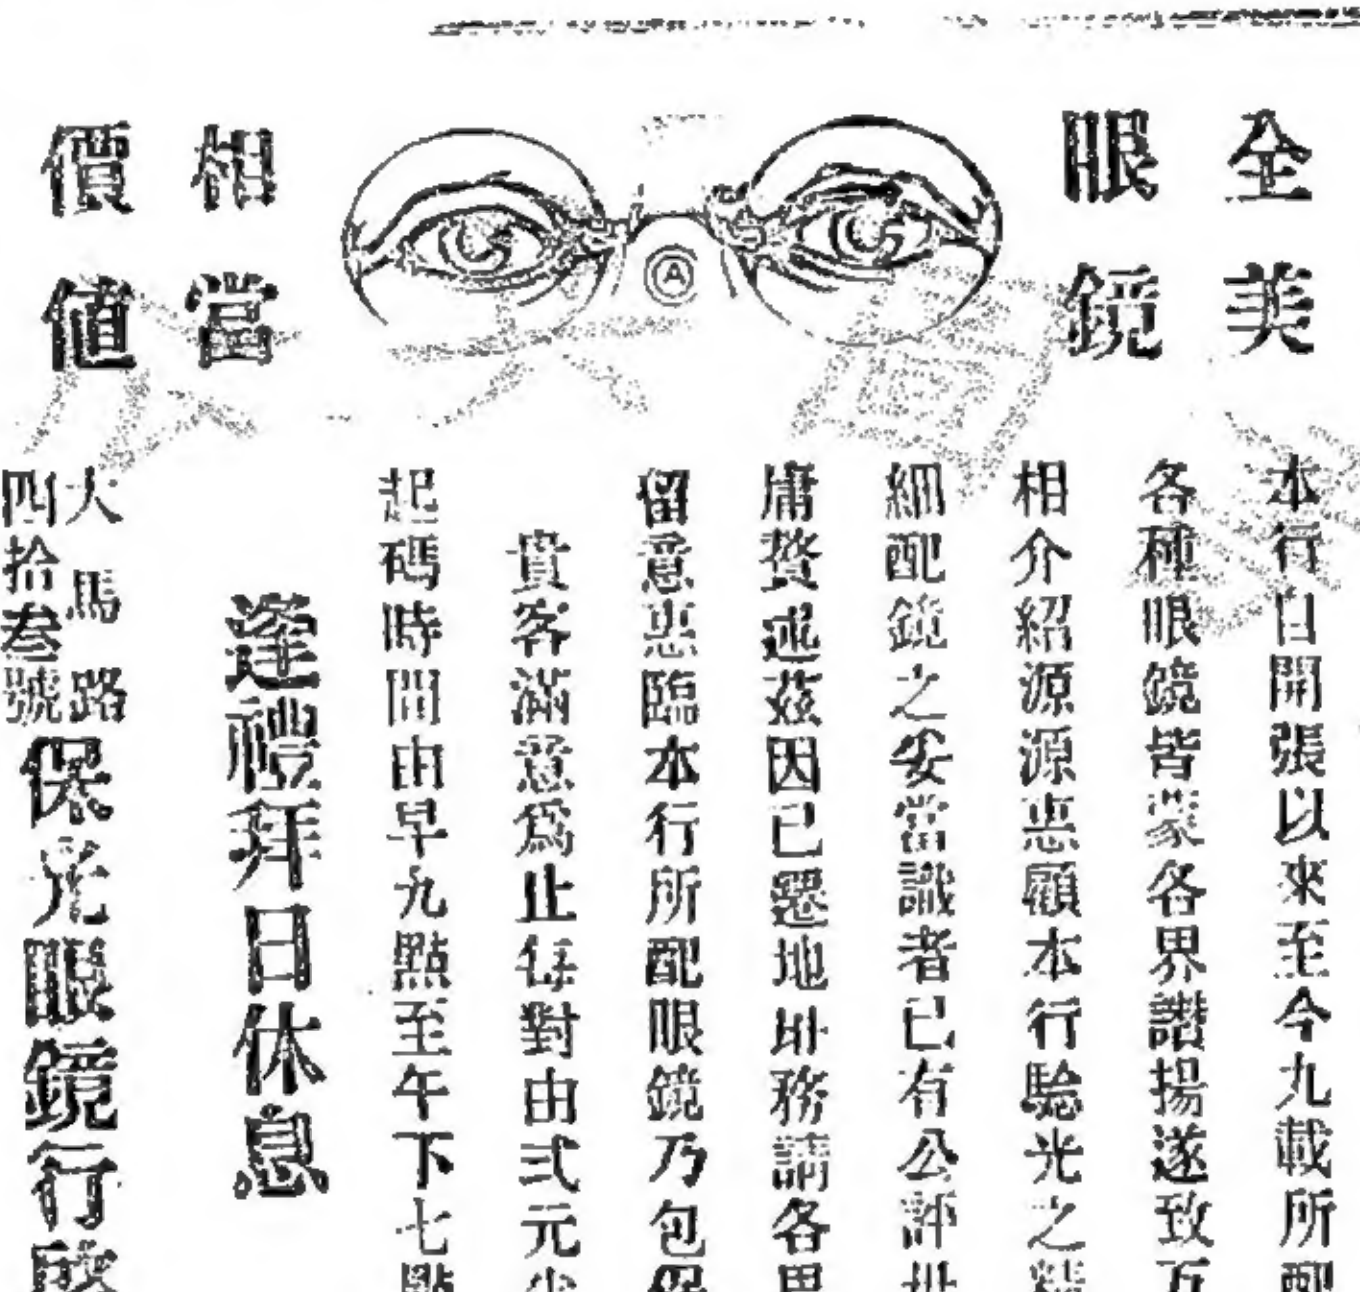 全美
眼鏡
Ⓐ
相當
價值
本行自開張以來至今九載所配
各種眼鏡皆蒙各界讚揚遂致互
相介紹源源惠顧本行驗光之精
細配鏡之妥當識者已有公評毋
庸贅述茲因已遷地址務請各界
留意惠臨本行所配眼鏡乃包保
貴客滿意爲止每對由弍元
起碼時間由早九點至午下七點
逢禮拜日休息
大馬路
四拾叁號
保光眼鏡行啟